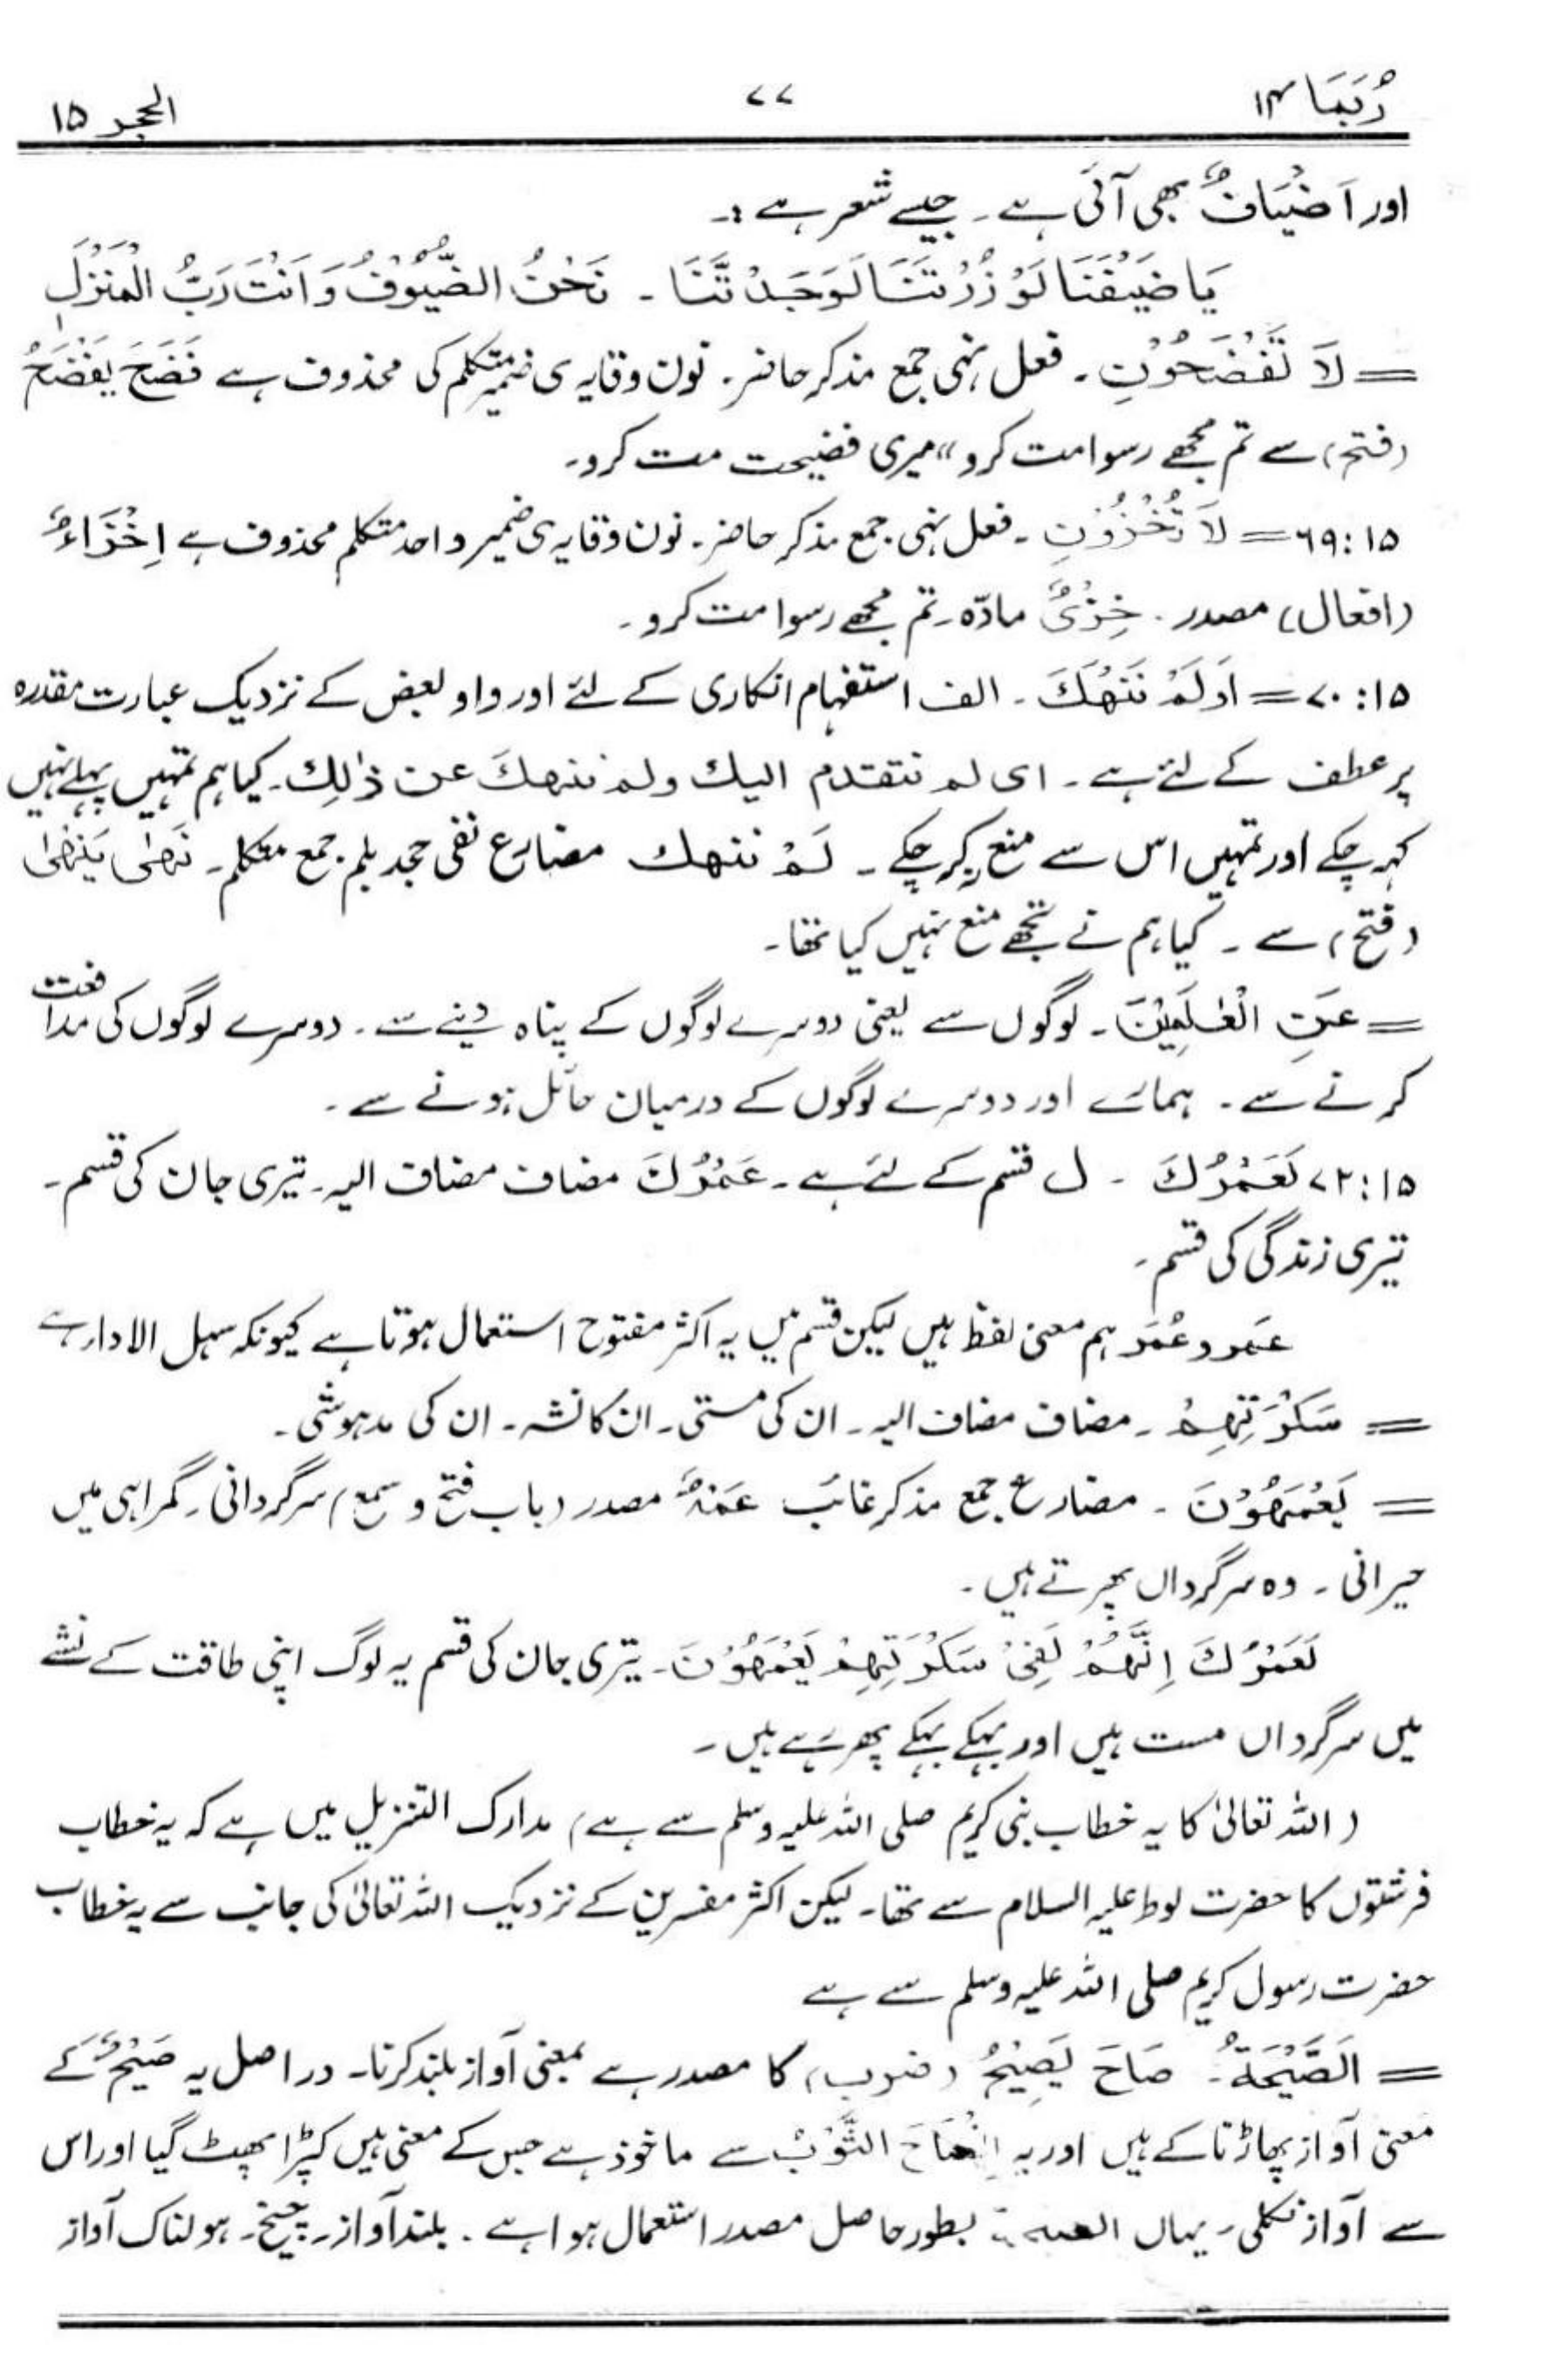 رُبَمَا ۱۴ ۷۷ الحجر ۱۵
اور اَضْیَافٌ بھی آئی ہے۔ جیسے شعر ہے :۔
یَا ضَیْفَنَا لَوْ زُرْتَنَا لَوَجَدْتَّنَا ۔ نَحْنُ الضُّیُوْفُ وَاَنْتَ رَبُّ الْمَنْزِلِ
= لَا تَفْضَحُوْنِ ۔ فعل نہی جمع مذکر حاضر۔ نون وقایہ ی ضمیر متکلم کی محذوف ہے فَضَحَ یَفْضَحُ
(فتح) سے تم مجھے رسوا مت کرو،، میری فضیحت مت کرو۔
۱۵:۶۹ = لَا تُخْزُوْنِ ۔ فعل نہی جمع مذکر حاضر۔ نون وقایہ ی ضمیر واحد متکلم محذوف ہے اِخْزَاءٌ
(افعال) مصدر ۔ خِزْیٌ مادّہ۔ تم مجھے رسوا مت کرو۔
۱۵:۷۰ = اَوَلَمْ نَنْهَكَ ۔ الف استفہام انکاری کے لئے اور واو بعض کے نزدیک عبارت مقدرہ
پر عطف کے لئے ہے ۔ ای لم نتقدم الیك ولم ننهكَ عن ذٰلِك۔ کیا ہم تمہیں پہلے نہیں
کہہ چکے اور تمہیں اس سے منع نہیں کر چکے ۔ لَمْ ننهك مضارع نفی جحد بلم جمع متکلم۔ نَهٰی یَنْهٰی
(فتح) سے ۔ کیا ہم نے تجھے منع نہیں کیا تھا۔
= عَنِ الْعٰلَمِیْنَ ۔ لوگوں سے یعنی دوسرے لوگوں کے پناہ دینے سے ۔ دوسرے لوگوں کی مدافعت
کرنے سے ۔ ہمارے اور دوسرے لوگوں کے درمیان حائل ہونے سے ۔
۱۵:۷۲ لَعَمْرُكَ ۔ ل قسم کے لئے ہے ۔ عَمْرُكَ مضاف مضاف الیہ۔ تیری جان کی قسم۔
تیری زندگی کی قسم ۔
عَمر و عُمَر ہم معنی لفظ ہیں لیکن قسم میں یہ اکثر مفتوح استعمال ہوتا ہے کیونکہ سہل الادا ہے
= سَكْرَتِهِمْ ۔ مضاف مضاف الیہ ۔ ان کی مستی۔ ان کا نشہ۔ ان کی مدہوشی۔
= یَعْمَهُوْنَ ۔ مضارع جمع مذکر غائب عَمْهٌ مصدر (باب فتح و سمع) سرگردانی۔ گمراہی میں
حیرانی ۔ وہ سرگرداں پھرتے ہیں ۔
لَعَمْرُكَ اِنَّهُمْ لَفِیْ سَكْرَتِهِمْ یَعْمَهُوْنَ ۔ تیری جان کی قسم یہ لوگ اپنی طاقت کے نشے
میں سرگرداں مست ہیں اور بہکے بہکے پھر رہے ہیں ۔
(اللہ تعالیٰ کا یہ خطاب نبی کریم صلی اللہ علیہ وسلم سے ہے) مدارک التنزیل میں ہے کہ یہ خطاب
فرشتوں کا حضرت لوط علیہ السلام سے تھا۔ لیکن اکثر مفسرین کے نزدیک اللہ تعالیٰ کی جانب سے یہ خطاب
حضرت رسول کریم صلی اللہ علیہ وسلم سے ہے
= اَلصَّیْحَةُ ۔ صَاحَ یَصِیْحُ (ضرب) کا مصدر ہے بمعنی آواز بلند کرنا۔ در اصل یہ صَیْحٌ کے
معنی آواز پھاڑنا کے ہیں اور یہ اِنْصَاحَ الثَّوْبُ سے ماخوذ ہے جس کے معنی ہیں کپڑا پھٹ گیا اور اس
سے آواز نکلی۔ یہاں بطور حاصل مصدر استعمال ہوا ہے ۔ بلند آواز۔ چیخ۔ ہولناک آواز